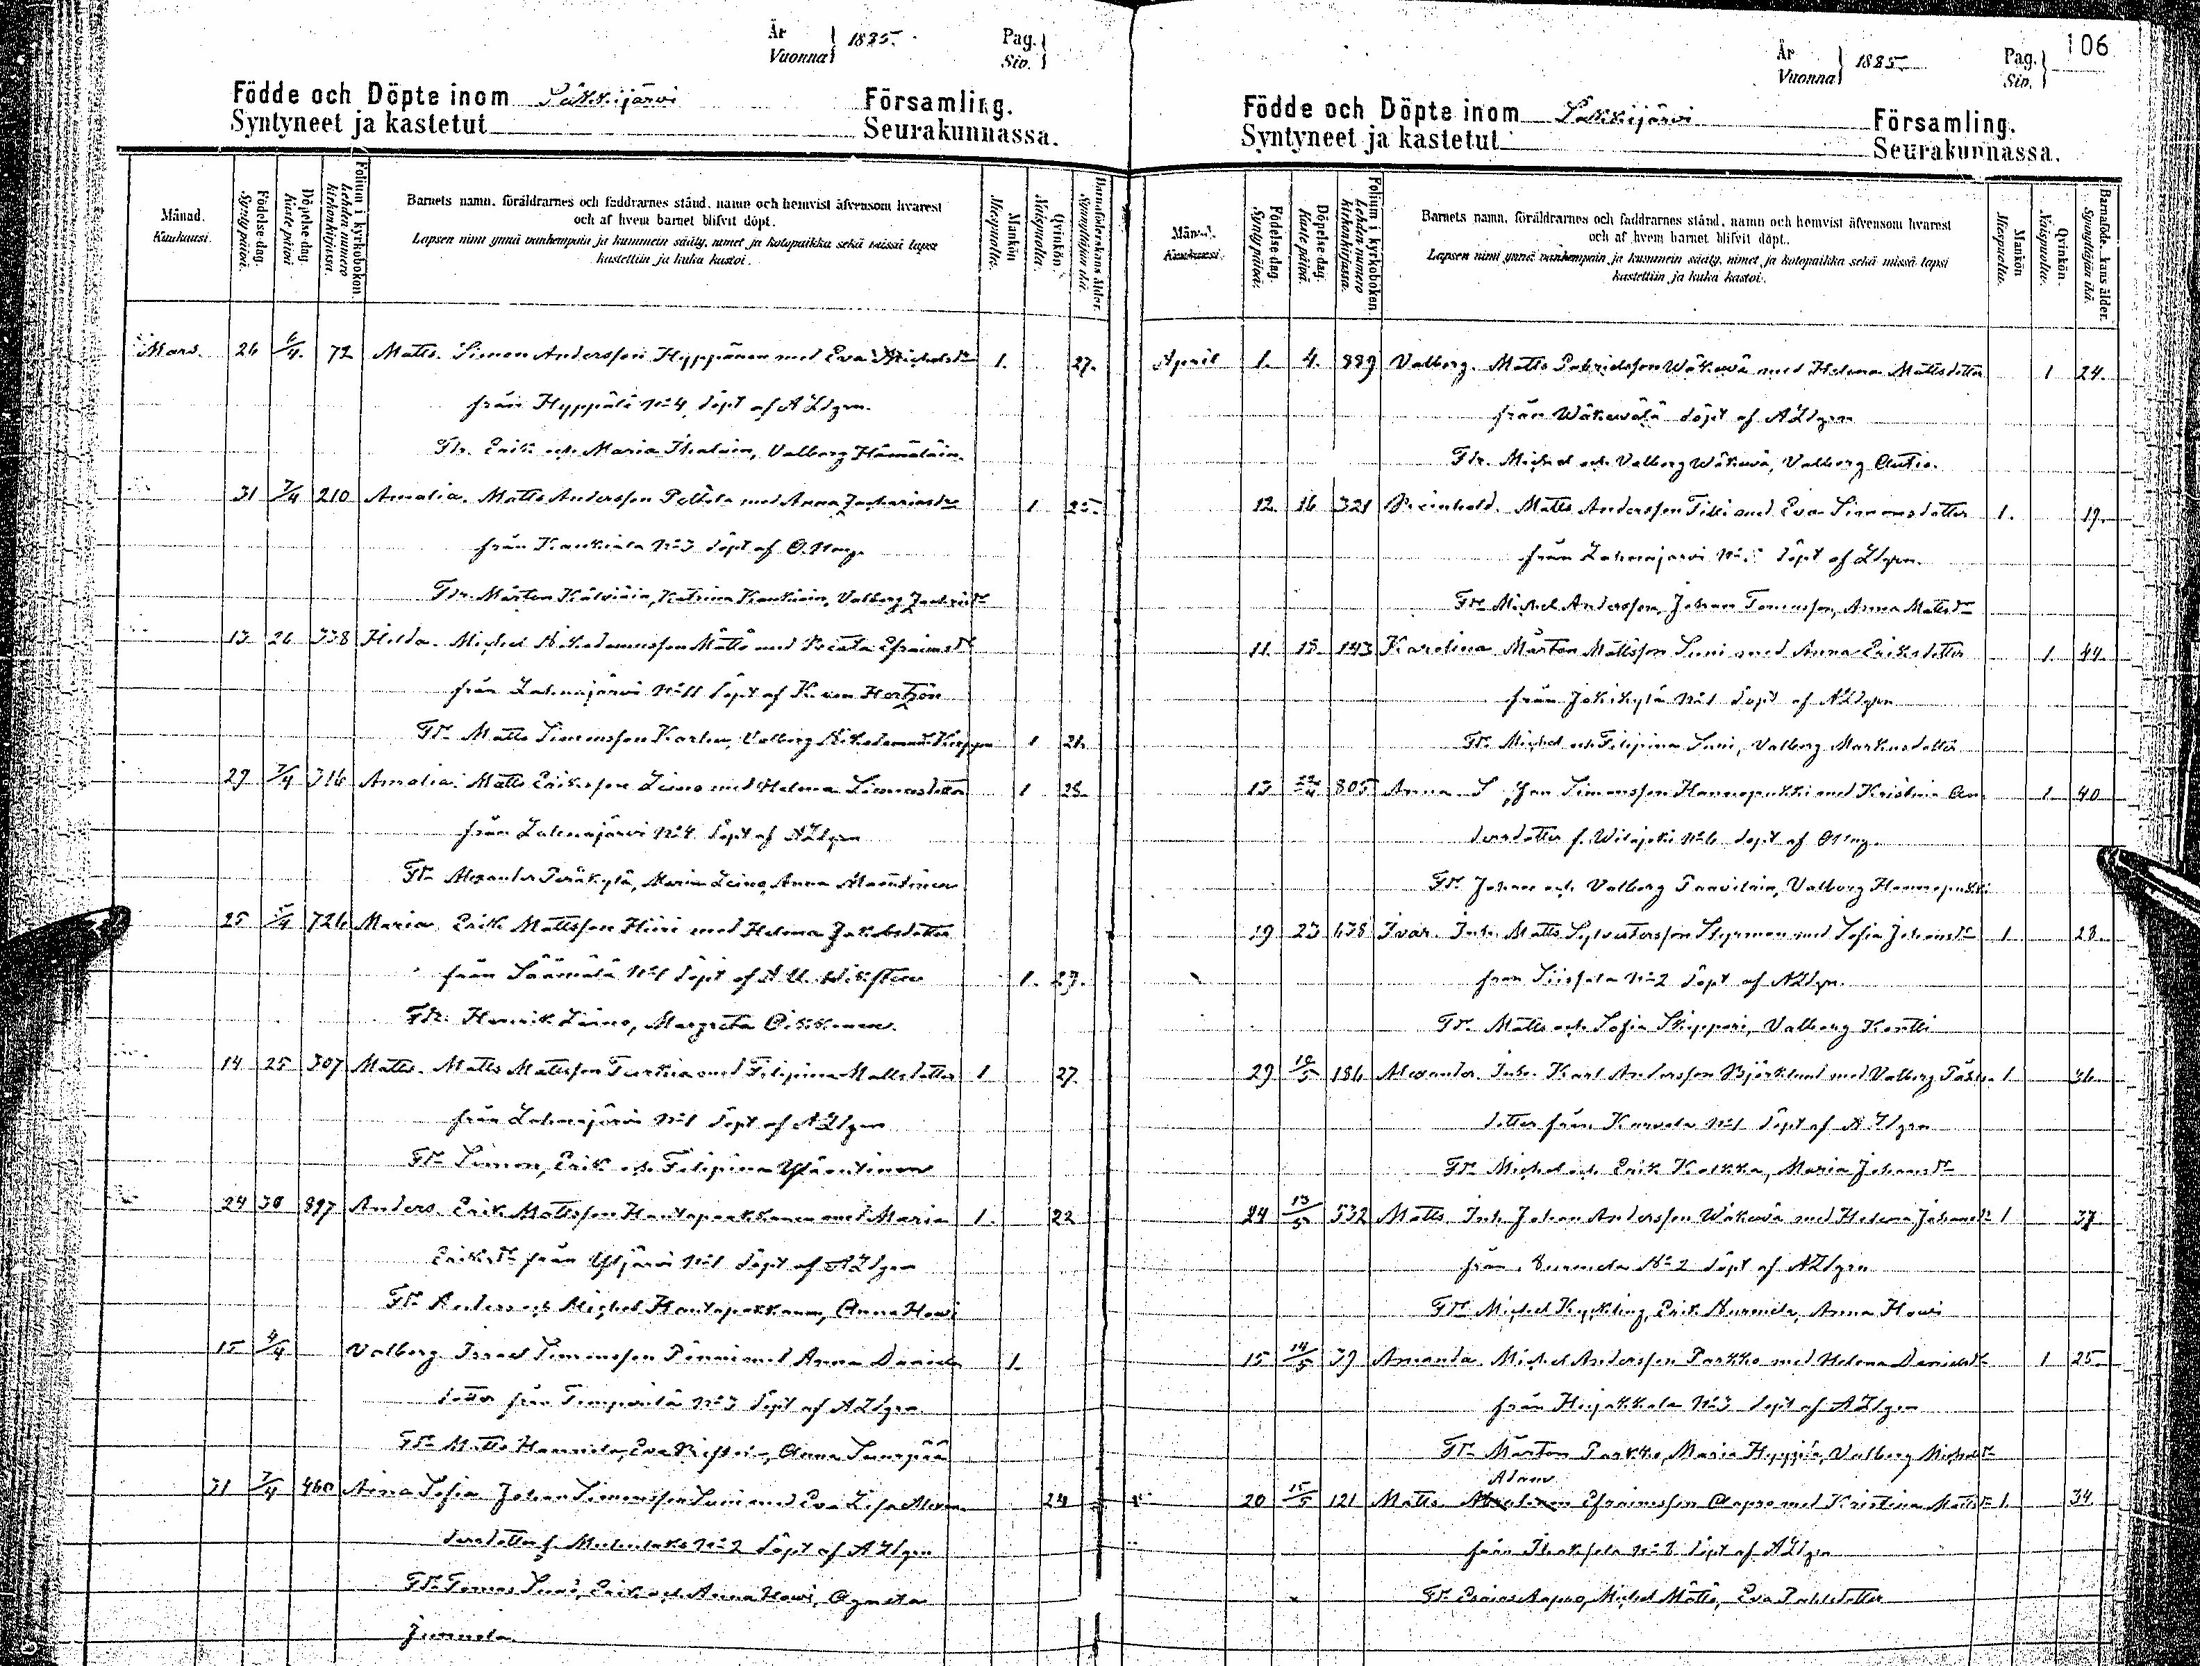 År
Vuonna } 1885.
Pag.
Siv.
Födde och Döpte inom Säkkijärvi Församling.
Syntyneet ja kastetut Seurakunnassa.
Månad.
Kuukausi.
Födelse dag.
Synty päivä.
Döpelse dag.
Kaste päivä.
Folium i kyrkoboken.
Lehden numero kirkonkirjassa.
Barnets namn, föräldrarnes och faddrarnes stånd, namn och hemvist äfvensom hvarest
och af hvem barnet blifvit döpt.
Lapsen nimi ynnä vanhempain ja kummein sääty, nimet ja kotopaikka sekä missä lapsi
kastettiin ja kuka kastoi.
Mankön
Miespuolia.
Qvinkön.
Naispuolia.
Barnaföderskans ålder.
Synnyttäjän ikä.
Mars. 26 6/4. 72 Matts. Simon Andersson Hyppänen med Eva Michelsdr 1. 27.
från Hyppälä No 4 döpt af A Ldgren.
Fdr. Erik och Maria Ihalain, Valborg Hämäläin.
31 7/4 210 Amalia. Matts Andersson Peltola med Anna Zachariasdr 1 25.
från Kaukiala No 3 döpt af
Fdr. Mårten Kälviäin, Katrina Kaukiain, Valborg
13 26 338 Hilda. Michel Nikodemusson Mättö med Beata Efraimsdr
från Lahnajärvi No 11 döpt af K. von Hertzen
Fdr Matts Simonsson Karhu, Valborg 1 21.
29 7/4 316 Amalia. Matts Eriksson Leino med Helena Simonsdotter 1 28.
från Lahnajärvi No 4 döpt af A Ldgren
Fdr Alexander Peräkylä, Maria Leino, Anna Mäentinen
25 5/4 726 Maria. Erik Mattsson Hiiri med Helena Jakobsdotter
från Säämälä No 1 döpt af A. U. Wikstén 1. 27.
Fdr. Henrik Leino, Margreta Oikkonen.
14 25 307 Matts. Matts Mattsson Turkia med Filipina Mattsdotter 1 27.
från Lahnajärvi No 1 döpt af A Ldgren
Fdr Simon, Erik och Filipina
24 30 897 Anders. Erik Mattsson Hautapakkanen med Maria 1. 22
Eriksdr från Ylijärvi No 1 döpt af A Ldgren
Fdr Anders och Michel Hautapakkanen, Anna Howi
15 4/4 Valborg. Israel Simonsson Pinni med Anna Daniels 1.
dotter från No 3 döpt af A Ldgren
Fdr Matts Hannila, Eva Anna Suurpää
31 7/4 460 Aina Sofia. Johan Simonsson Suni med Eva Lisa Alexan 24
dersdotter f. Muhulaks No 2 döpt af A Ldgren
Fdr Tomas Suni, Erik och Anna Howi, Agneta
Junnola.
106
År
Vuonna } 1885.
Pag.
Siv.
Födde och Döpte inom Säkkijärvi Församling.
Syntyneet ja kastetut Seurakunnassa.
Månad.
Kuukausi.
Födelse dag.
Synty päivä.
Döpelse dag.
Kaste päivä.
Folium i kyrkoboken.
Lehden numero kirkonkirjassa.
Barnets namn, föräldrarnes och faddrarnes stånd, namn och hemvist äfvensom hvarest
och af hvem barnet blifvit döpt.
Lapsen nimi ynnä vanhempain ja kummein sääty, nimet ja kotopaikka sekä missä lapsi
kastettiin ja kuka kastoi.
Mankön
Miespuolia.
Qvinkön.
Naispuolia.
Barnaföderskans ålder.
Synnyttäjän ikä.
April 1. 4. 889 Valborg. Matts Gabrielsson Wäkewä med Helena Mattsdotter 1 24.
från Wäkewälä döpt af A Ldgren
Fdr. Michel och Valborg Wäkewä, Valborg Autio.
12. 16 321 Reinhold. Matts Andersson Tilli med Eva Simonsdotter 1. 19.
från Lahnajärvi No döpt af Ldgren.
Fdr Michel Andersson, Johan Tomasson, Anna Mattsdr
11. 15. 143 Karolina. Mårten Mattsson Suni med Anna Eriksdotter 1. 44.
från Jokikylä No 1 döpt af A Ldgren
Fdr Michel och Filipina Suni, Valborg Markusdotter
13 805 Anna. Johan Simonsson Hannonpukki med Kristina An 1. 40
dersdotter f. Wilajoki No 6 döpt af
Fdr Johan och Valborg Paavilain, Valborg Hannonpukki
19 23 638 Ivar. Inh. Matts Sylvestersson Styrman med Sofia Johansdr 1. 28.
från Siisiala No 2 döpt af A Ldgren.
Fdr Matts och Sofia Skippari, Valborg Kontti
29 10/5 186 Alexander. Inh. Karl Andersson Björklund med Valborg 1. 36.
dotter från Karvala No 1 döpt af A Ldgren
Fdr Michel och Erik Kolkka, Maria Johansdr
24 13/5 532 Matts. Inh. Johan Andersson Wäkewä med Helena Johansdr 1 37
från Nurmela No 2 döpt af A Ldgren
Fdr Michel Kyckling, Erik Nurmela, Anna Howi
15 14/5 39 Amanda. Michel Andersson Parkko med Helena Danielsdr 1 25
från Heijakkala No 3 döpt af A Ldgren
Fdr Mårten Parkko, Maria Hyppiä, Valborg Michelsdr
Adam
20 15/5 121 Matts. Efraimsson Aapro med Kristina Mattsdr 1. 34
från Ihaksela No 8 döpt af A Ldgren
Fdr Esaias Aapro, Michel Mättö, Eva Pahlsdotter